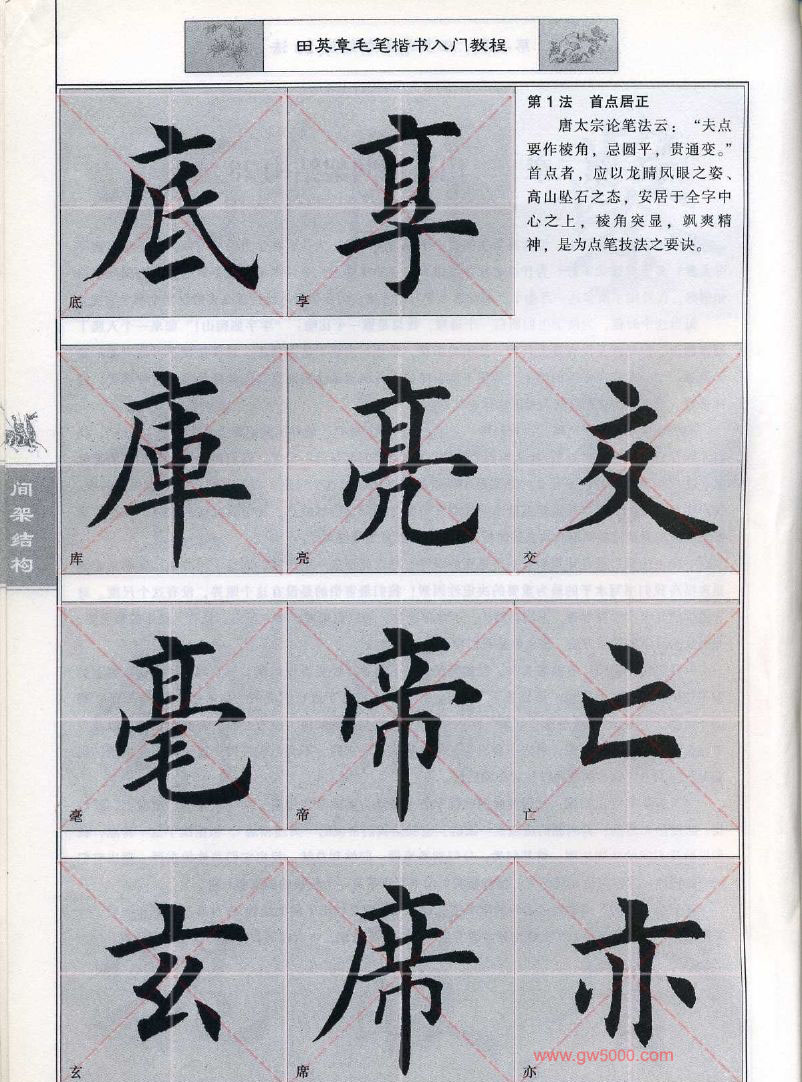 田英章毛笔楷书入门教程
第1法 首点居正
唐太宗论笔法云：“夫点
要作棱角，忌圆平，贵通变。”
首点者，应以龙睛凤眼之姿、
高山坠石之态，安居于全字中
心之上，棱角突显，飒爽精
神，是为点笔技法之要诀。
底 享
底 享
庫 亮 交
库 亮 交
毫 帝 亡
毫 帝 亡
玄 席 亦
玄 席 亦
间架结构
www.gw5000.com